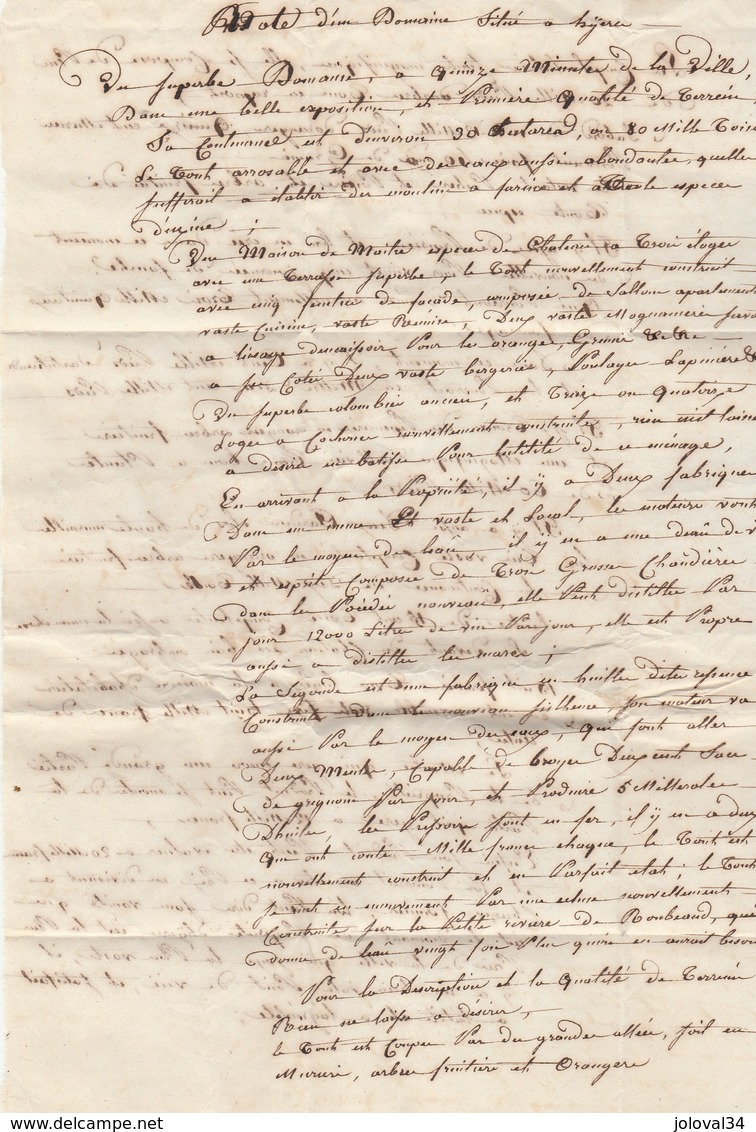 Note d'un Domaine Situé a hÿere
Un Superbe Domaine, a Quinze Minutes de la Ville,
Dans une belle exposition, et Première Qualité de Terrein
Sa Contenance est d'environ 30 hectares, ou 80 Mille Toise
Le Tout arrosable et avec des eaux aussi abondantes, quelles
Suffirait a établir des moulin a farine et a Toute espece
d'uzine ;
Une Maison de Maitre espece de Chateau a Trois étages
avec une Terrasse Superbe, le Tout nouvellement construit
avec cinq fenetre de façade, composée de Sallons apartement
vaste Cuisine, vaste Remise, Deux vaste Magnanerie
a l'usage dencaissoir Pour les orange, Grenier &c &c
a Ses Coté Deux vaste bergerie, Poulayer Lapinière &
Un Superbe colombier ancien, et Treize ou Quatorze
Loges a Cochons nouvellement construites, rien
a désiré en batisse Pour l'utilité de ce ménage,
En arrivant a la Propriété, il ÿ a Deux fabrique
Dans un immense et vaste Local, les moteurs vont
Par le moyen de leaû, il ÿ en a une deau de v
et esprit Composée de Trois Grosses Chaudières
dans les Procédés nouveaux, elle Peut distiller Par
jour 12000 Litre de vin Par jour, elle est Propre
aussi a distiller les marcs ;
La Segonde est une fabrique en huille dite ressence
Construite Dans le nouveau Sistheme, Son moteur va
aussi Par le moyen des eaux, qui font aller
Deux Meule, Capable de broyer Deux cent Sacs
de grignons Par jour, et Produire 5 Millerolles
D'huile, les Pressoirs Sont en fer, il ÿ en a deux
Qui ont couté Mille francs chaque, le Tout est
nouvellement construit et en Parfait état ; le Tout
Se met en mouvement Par une ecluse nouvellement
Construite Sur la Petite rivière de Roubeaud, qui
donne de leaû vingt fois Plus qu'on en aurait besoin
Pour la Description et la Qualité de Terrein
Rien ne laisse a désirer,
le Tout est Coupée Par de grandes allées, Soit en
Muriers, arbres fruitiers et Orangers
joloval34